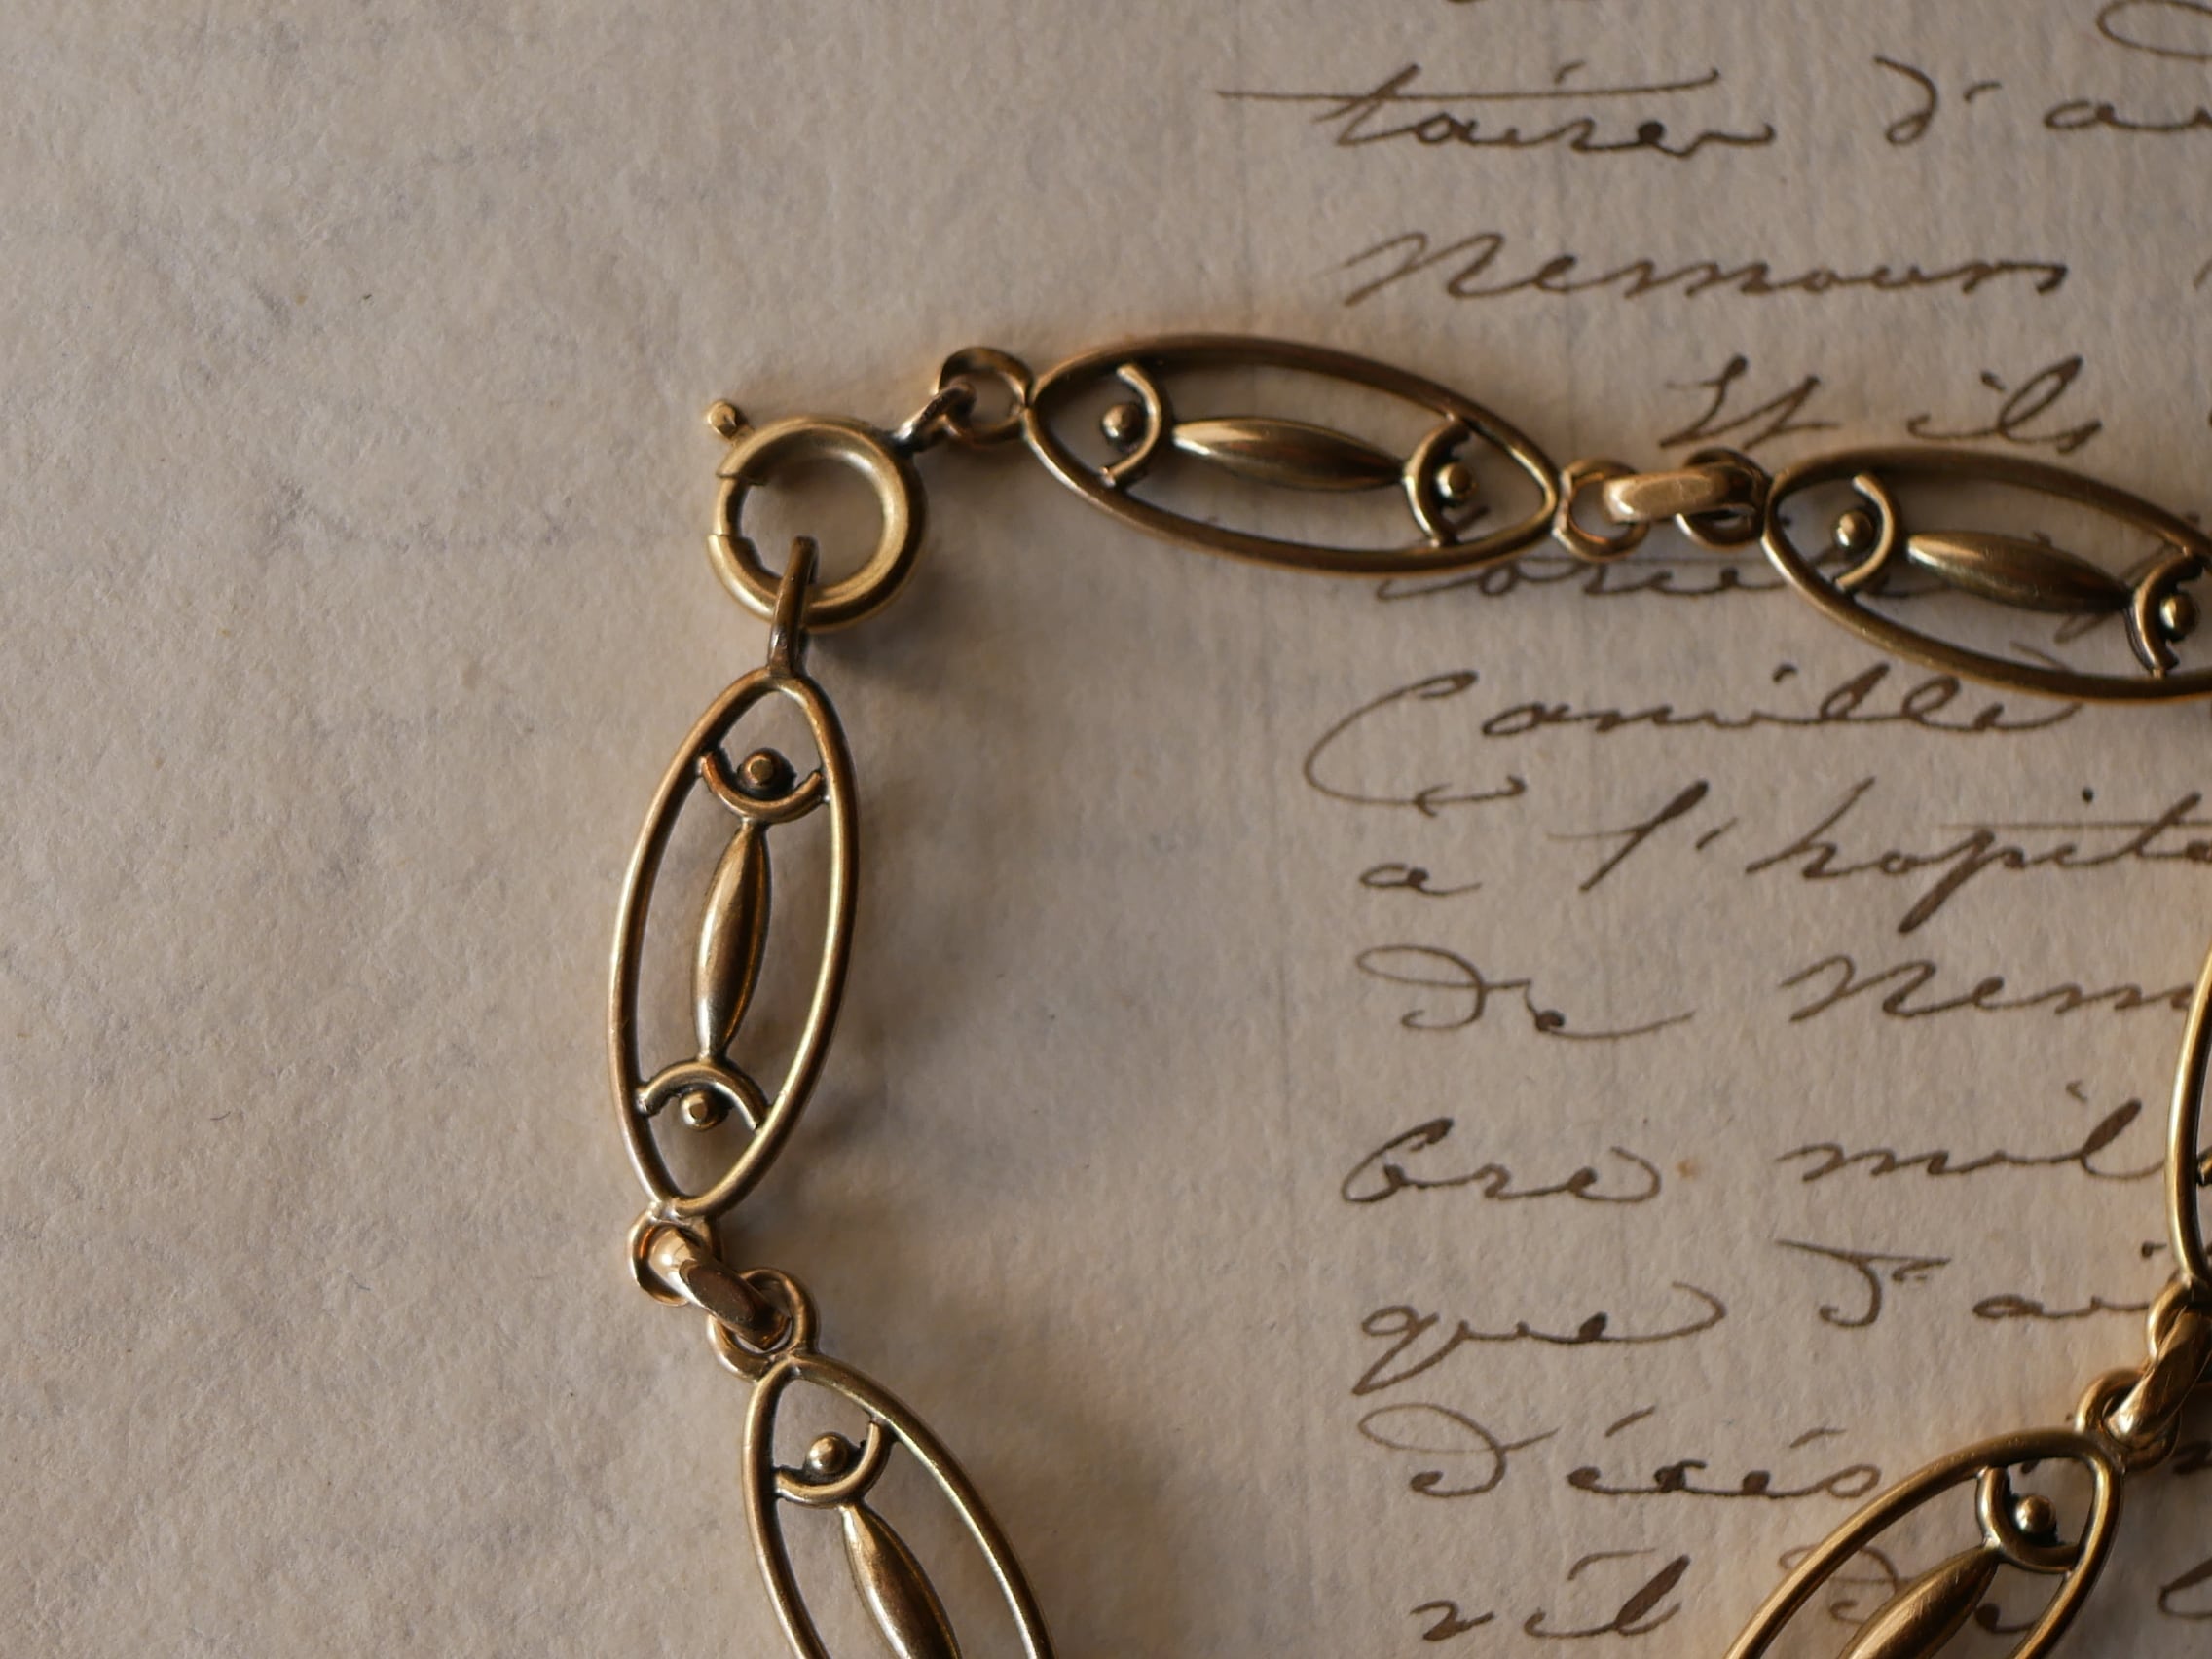 taires d'au
Nemours
Et ils
Camille
a l'hopita
de Nemo
bre mil
que J'ai
Décés
vil De